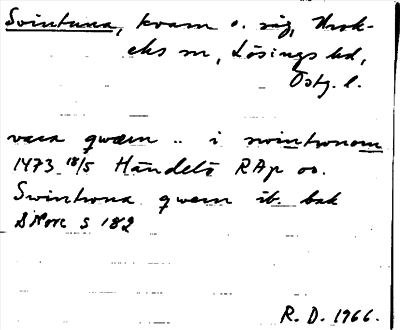 Svintuna, kvarn o. säg, Krok-
eks sn, Lösings hd,
Östg. l.
vara qwærn .. i swintwnom
1473 18/5 Händelö RAp oo.
Swintwna qwern ib. bak
DNork s 182
R. D. 1966.